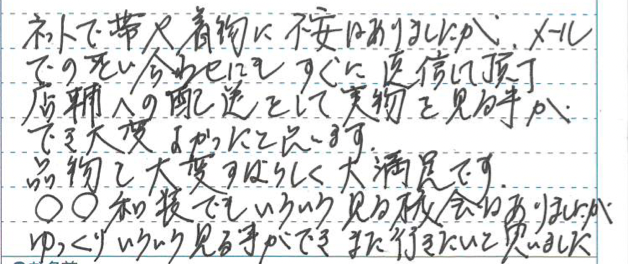 ネットで帯や着物に不安はありましたが、メール
での問い合わせにもすぐに返信して頂け
店舗への配送として実物を見る事が、
でき大変よかったと思います。
品物も大変すばらしく大満足です。
○○和装でもいろいろ見る機会はありましたが
ゆっくりいろいろ見る事ができまた行きたいと思いました